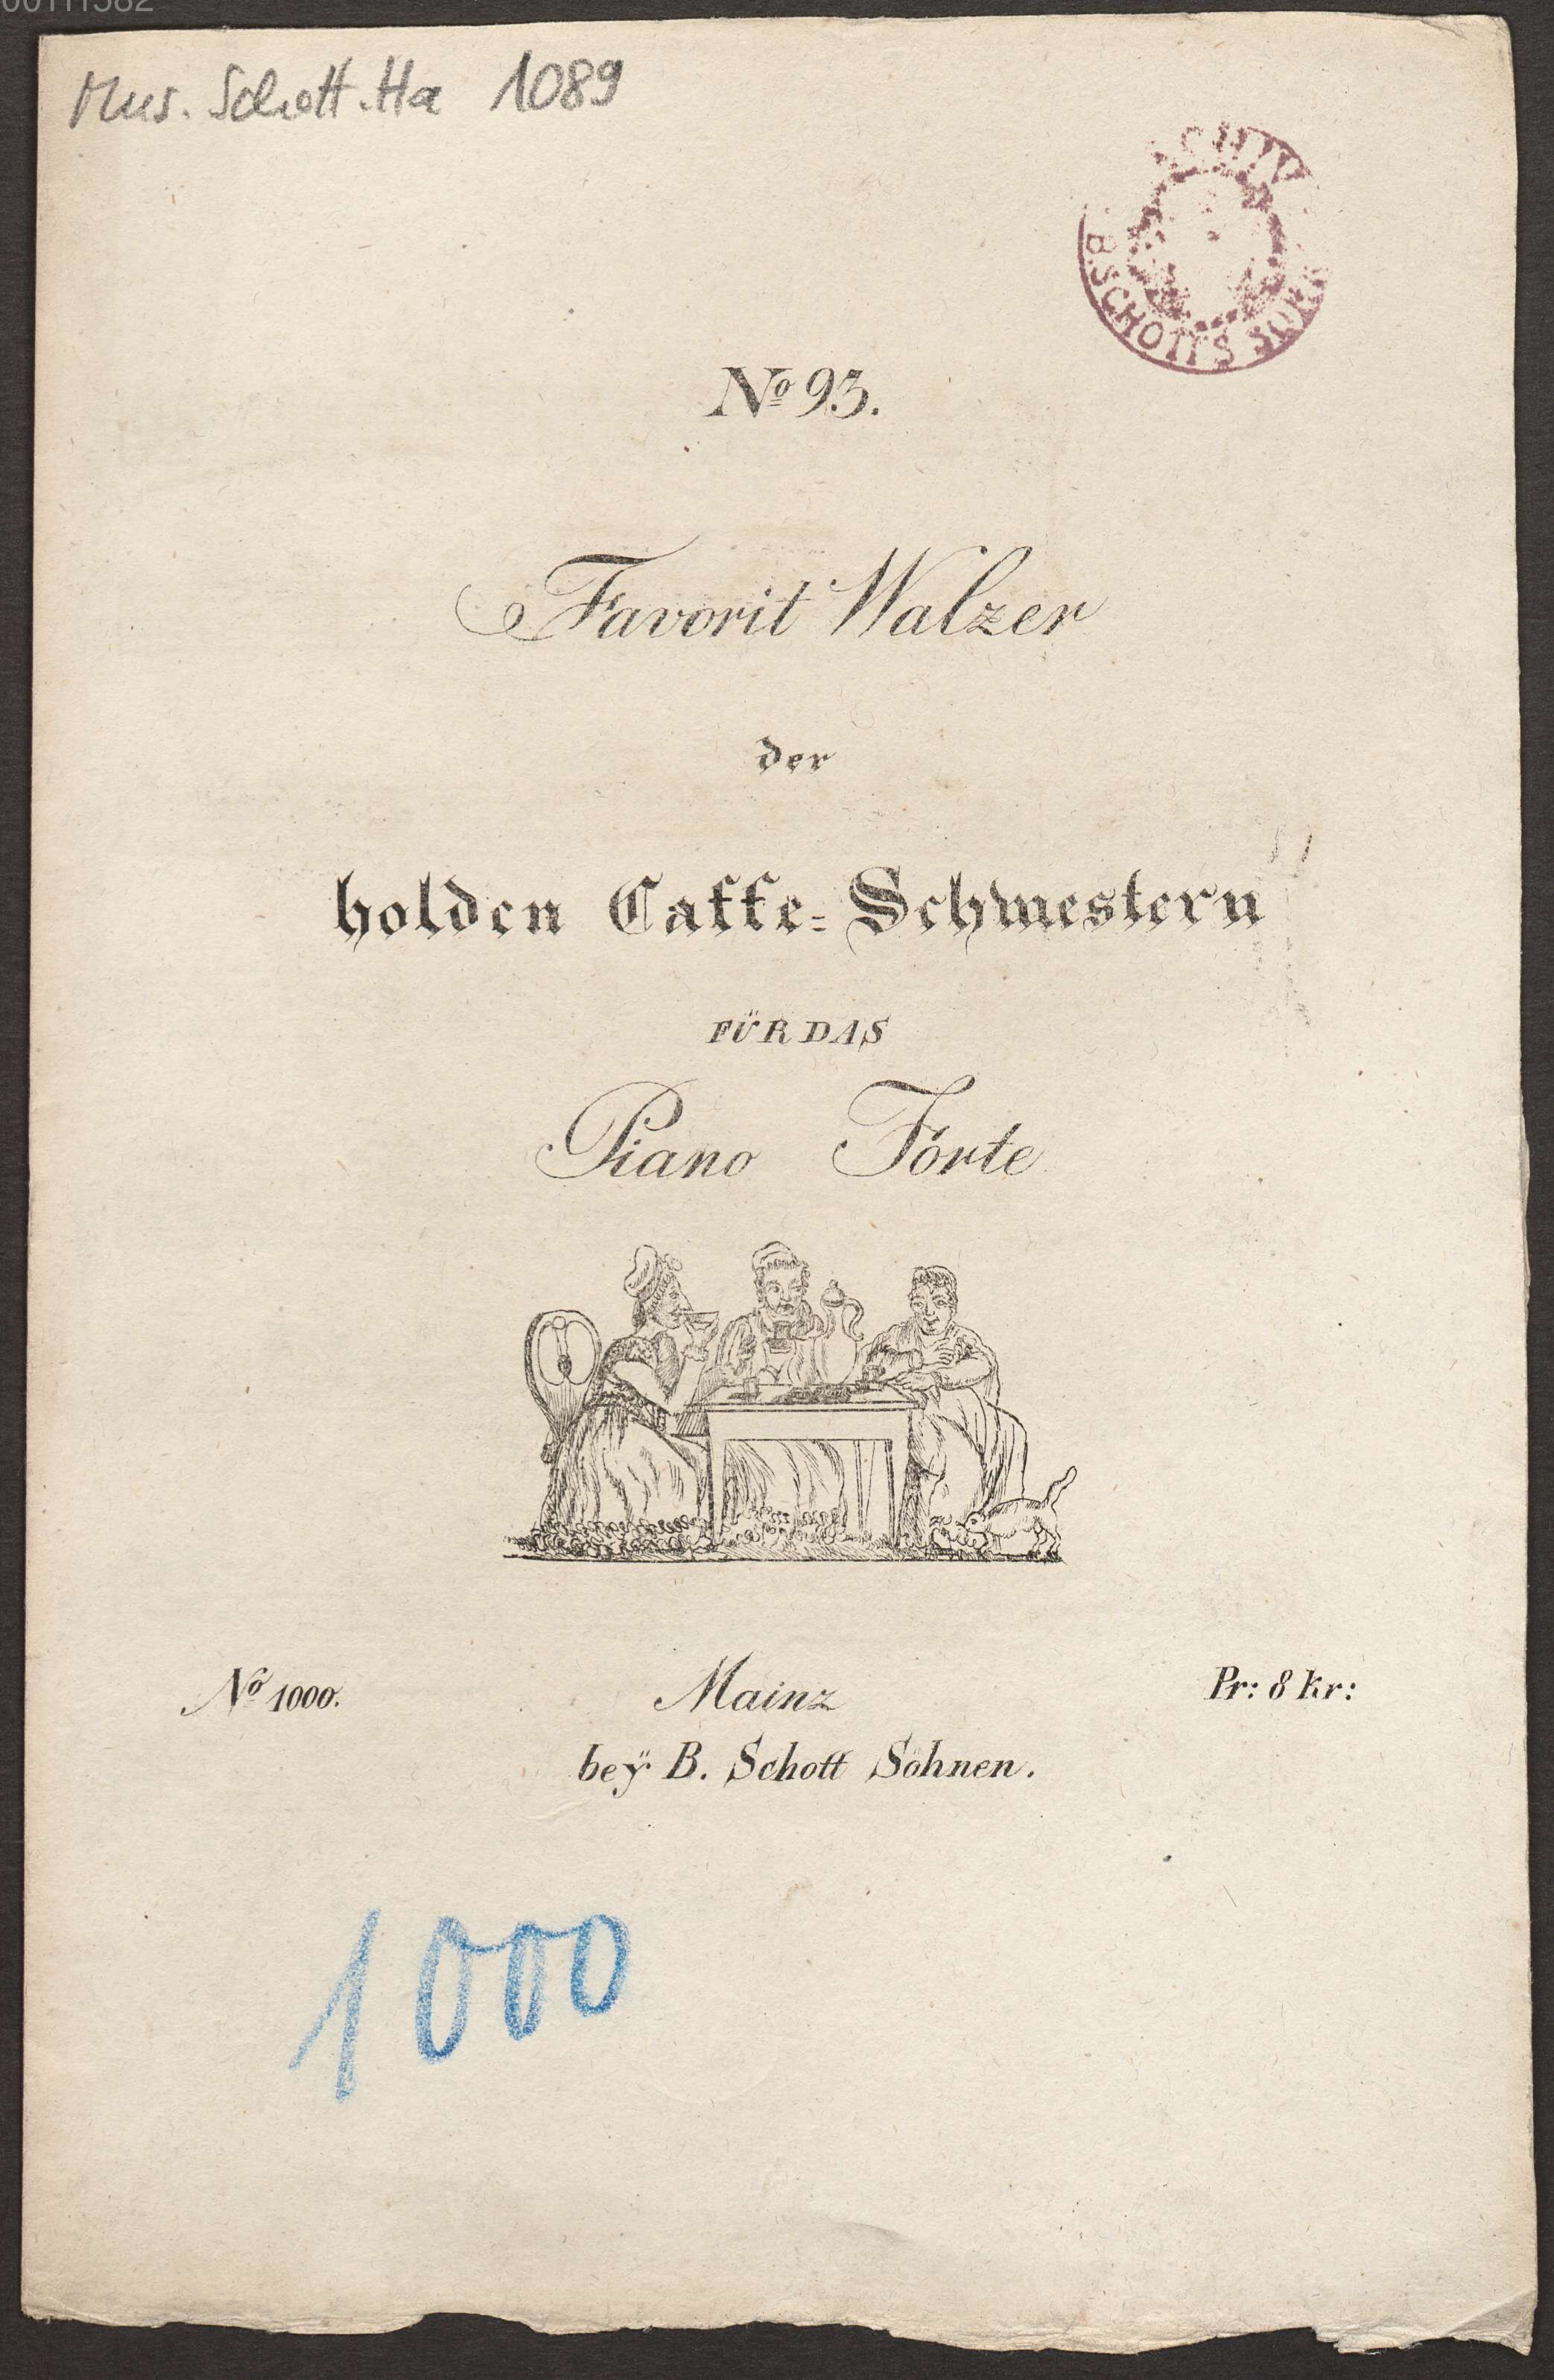 Mus. Schott. Ha 1089
B SCHOTT'S SÖHNE
Nº 93.
Favorit Walzer
der
holden Caffe-Schwestern
FÜR DAS
Piano Forte
Nº 1000.
Mainz
Pr: 8 kr:
beÿ B. Schott Söhnen.
1000